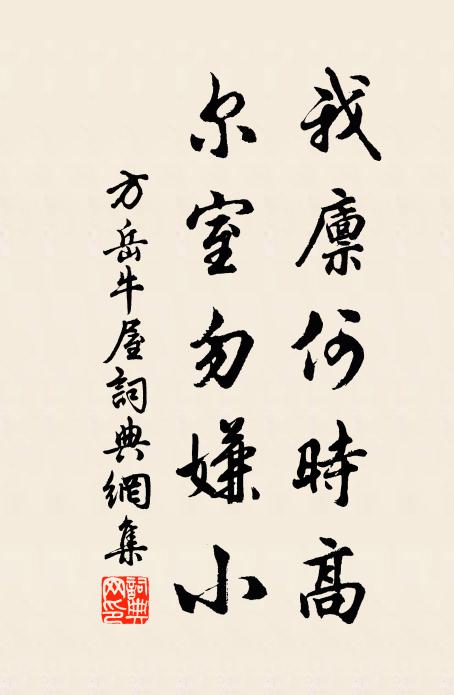 我廪何時高
尔室勿嫌小
方岳牛屋詞典網集
詞典网印